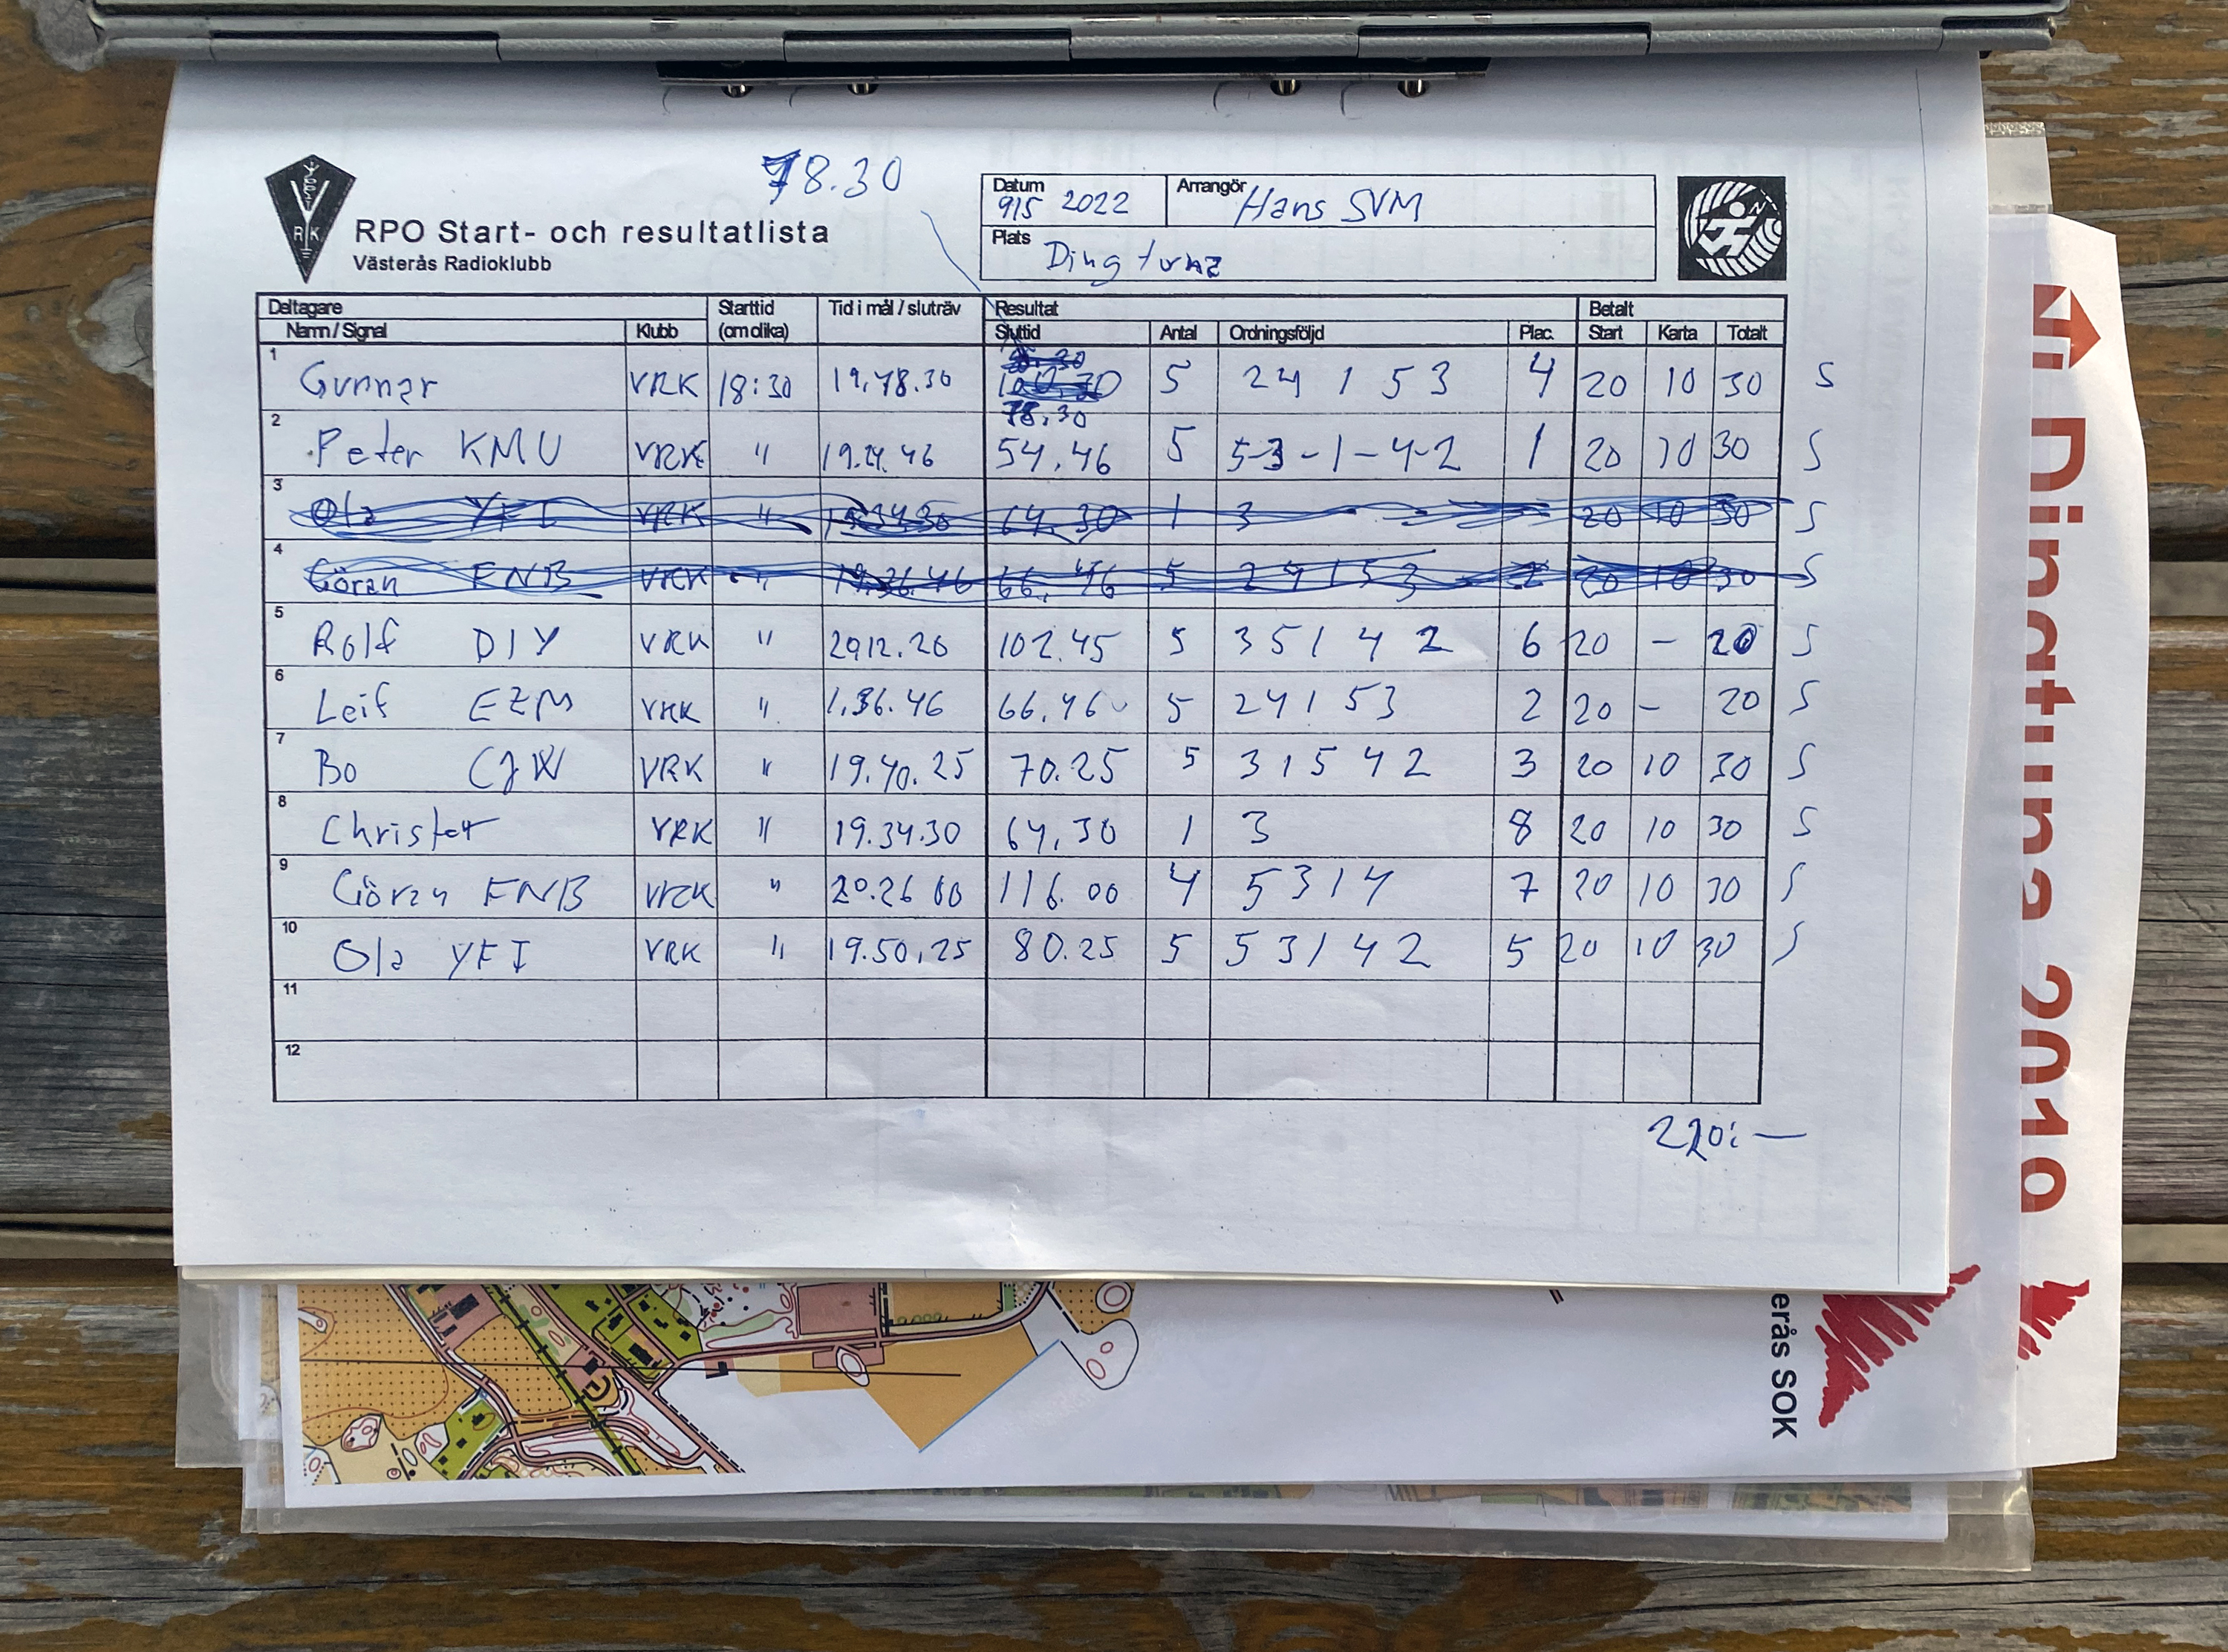 78.30
RPO Start- och resultatlista
Västerås Radioklubb
Datum 9/5 2022 Arrangör Hans SVM
Plats Dingtuna
Deltagare Starttid Tid i mål / sluträv Resultat Betalt
Namn / Signal Klubb (om olika) Sluttid Antal Ordningsföljd Plac. Start Karta Totalt
1 Gunnar VRK 18:30 19.48.30 78.30 5 2 4 1 5 3 4 20 10 30 S
2 Peter KMU VRK " 19.24.46 54.46 5 5-3-1-4-2 1 20 10 30 S
3 Ola YFI VRK " 19.34.30 64.30 1 3 20 10 30 S
4 Göran ENB VRK " 19.36.46 66.46 5 2 4 1 5 3 2 20 10 30 S
5 Rolf DIY VRK " 2012.20 102.45 5 3 5 1 4 2 6 20 - 20 S
6 Leif EZM VRK " 1.36.46 66.46 5 2 4 1 5 3 2 20 - 20 S
7 Bo CJW VRK " 19.40.25 70.25 5 3 1 5 4 2 3 20 10 30 S
8 Christer VRK " 19.34.30 64.30 1 3 8 20 10 30 S
9 Göran ENB VRK " 20.26 00 116.00 4 5 3 1 4 7 20 10 30 S
10 Ola YFI VRK " 19.50.25 80.25 5 5 3 1 4 2 5 20 10 30 S
11
12
220:—
Dingtuna 2019
erås SOK